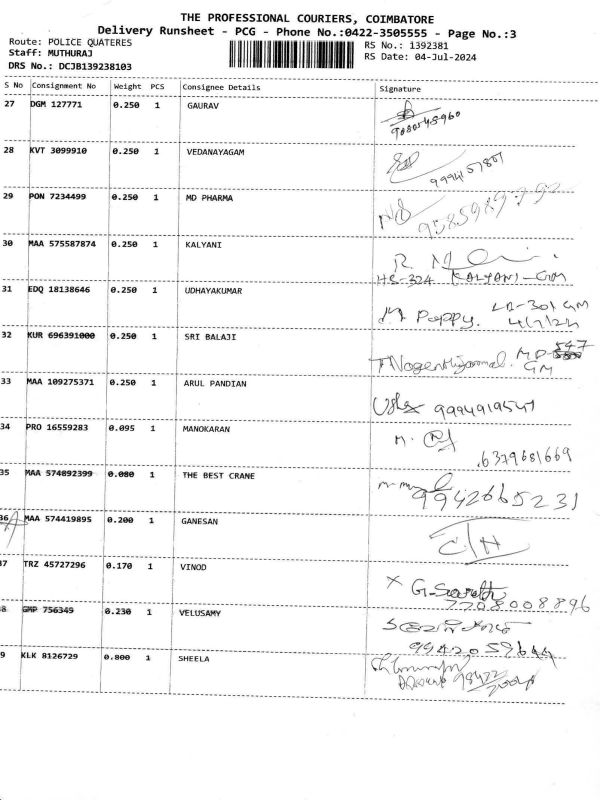 THE PROFESSIONAL COURIERS, COIMBATORE
Delivery Runsheet - PCG - Phone No.:0422-3505555 - Page No.:3
Route: POLICE QUATERES RS No.: 1392381
Staff: MUTHURAJ RS Date: 04-Jul-2024
DRS No.: DCJB139238103
S No Consignment No Weight PCS Consignee Details Signature
27 DGM 127771 0.250 1 GAURAV
28 KVT 3099910 0.250 1 VEDANAYAGAM
29 PON 7234499 0.250 1 MD PHARMA
30 MAA 575587874 0.250 1 KALYANI
HS-324 KALYANI-GM
31 EDQ 18138646 0.250 1 UDHAYAKUMAR
Poppy. 4/7/24
32 KUR 696391000 0.250 1 SRI BALAJI
547
GM
33 MAA 109275371 0.250 1 ARUL PANDIAN
Usha 9994919547
34 PRO 16559283 0.095 1 MANOKARAN
6379681669
35 MAA 574892399 0.080 1 THE BEST CRANE
9942665231
36 MAA 574419895 0.200 1 GANESAN
37 TRZ 45727296 0.170 1 VINOD
7708008896
8 GMP 756349 0.230 1 VELUSAMY
9 KLK 8126729 0.800 1 SHEELA